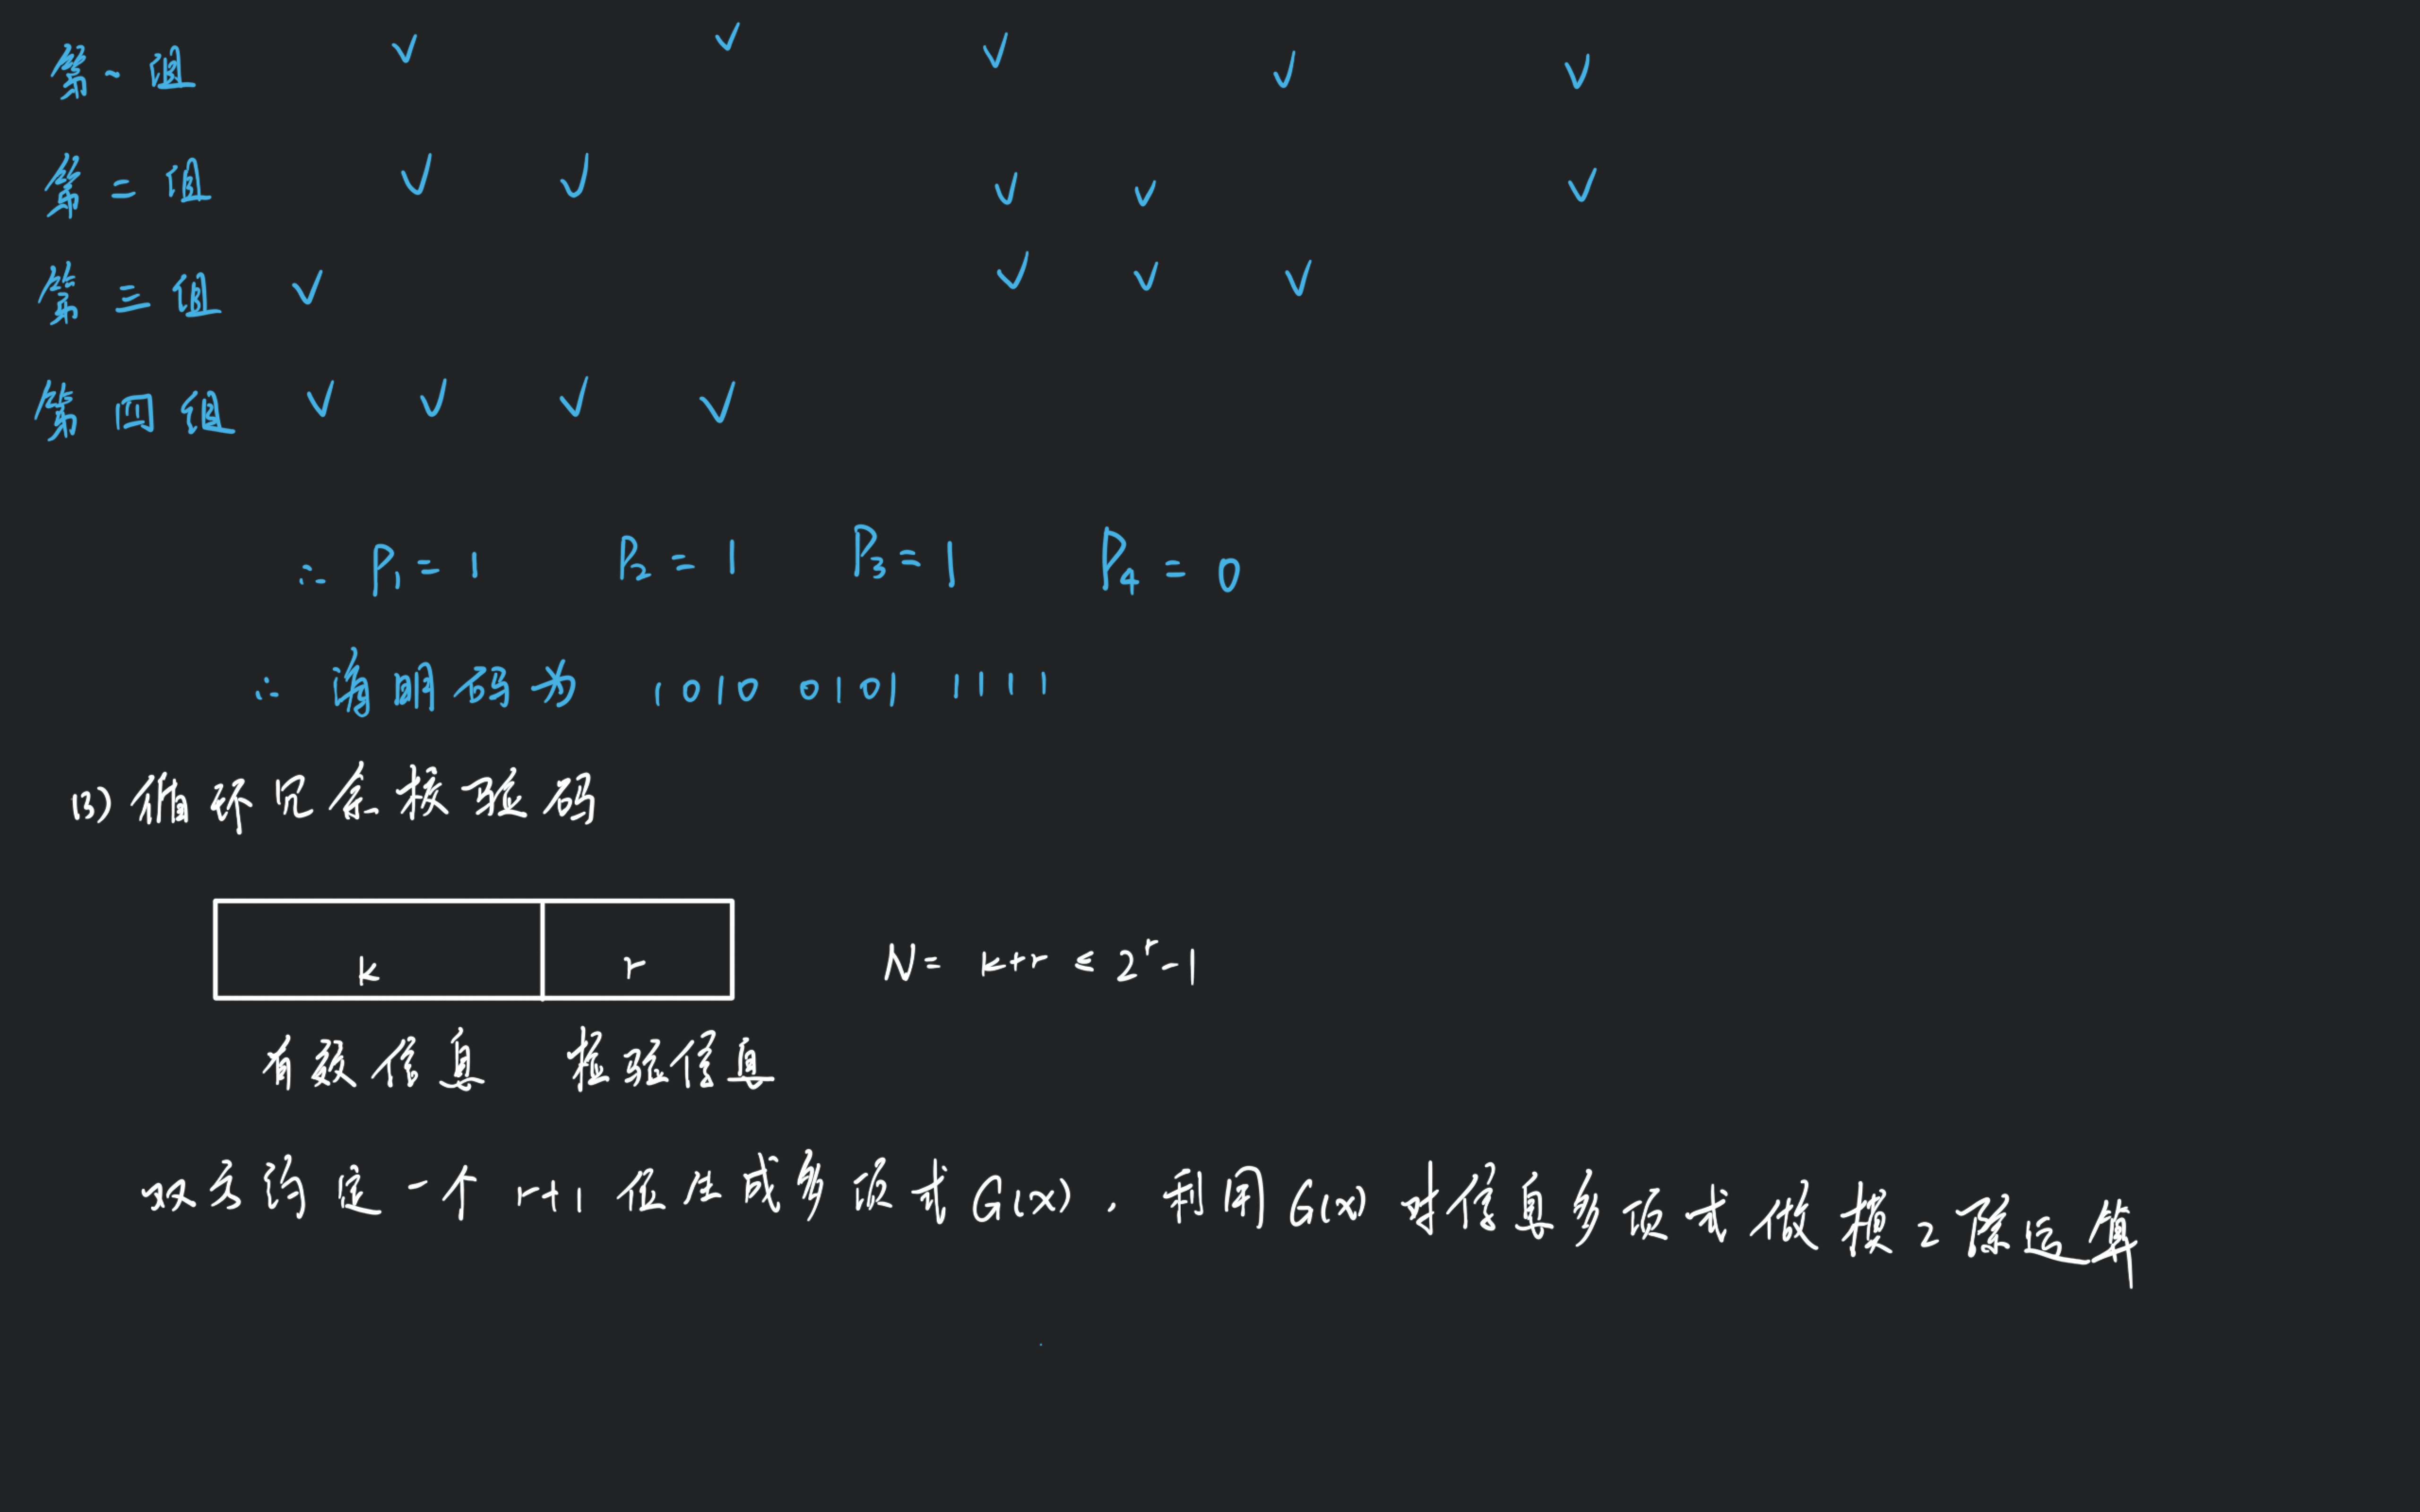 第一组 ✓ ✓ ✓ ✓ ✓
第二组 ✓ ✓ ✓ ✓ ✓
第三组 ✓ ✓ ✓ ✓
第四组 ✓ ✓ ✓ ✓
∴ P₁=1 P₂=1 P₃=1 P₄=0
∴ 海明码为 1010 0101 1111
(3) 循环冗余校验码
k r N= k+r ≤ 2^r-1
有效信息 检验信息
双方约定一个 r+1 位生成多项式 G(x)，利用G(x) 对信息多项式做模2除运算